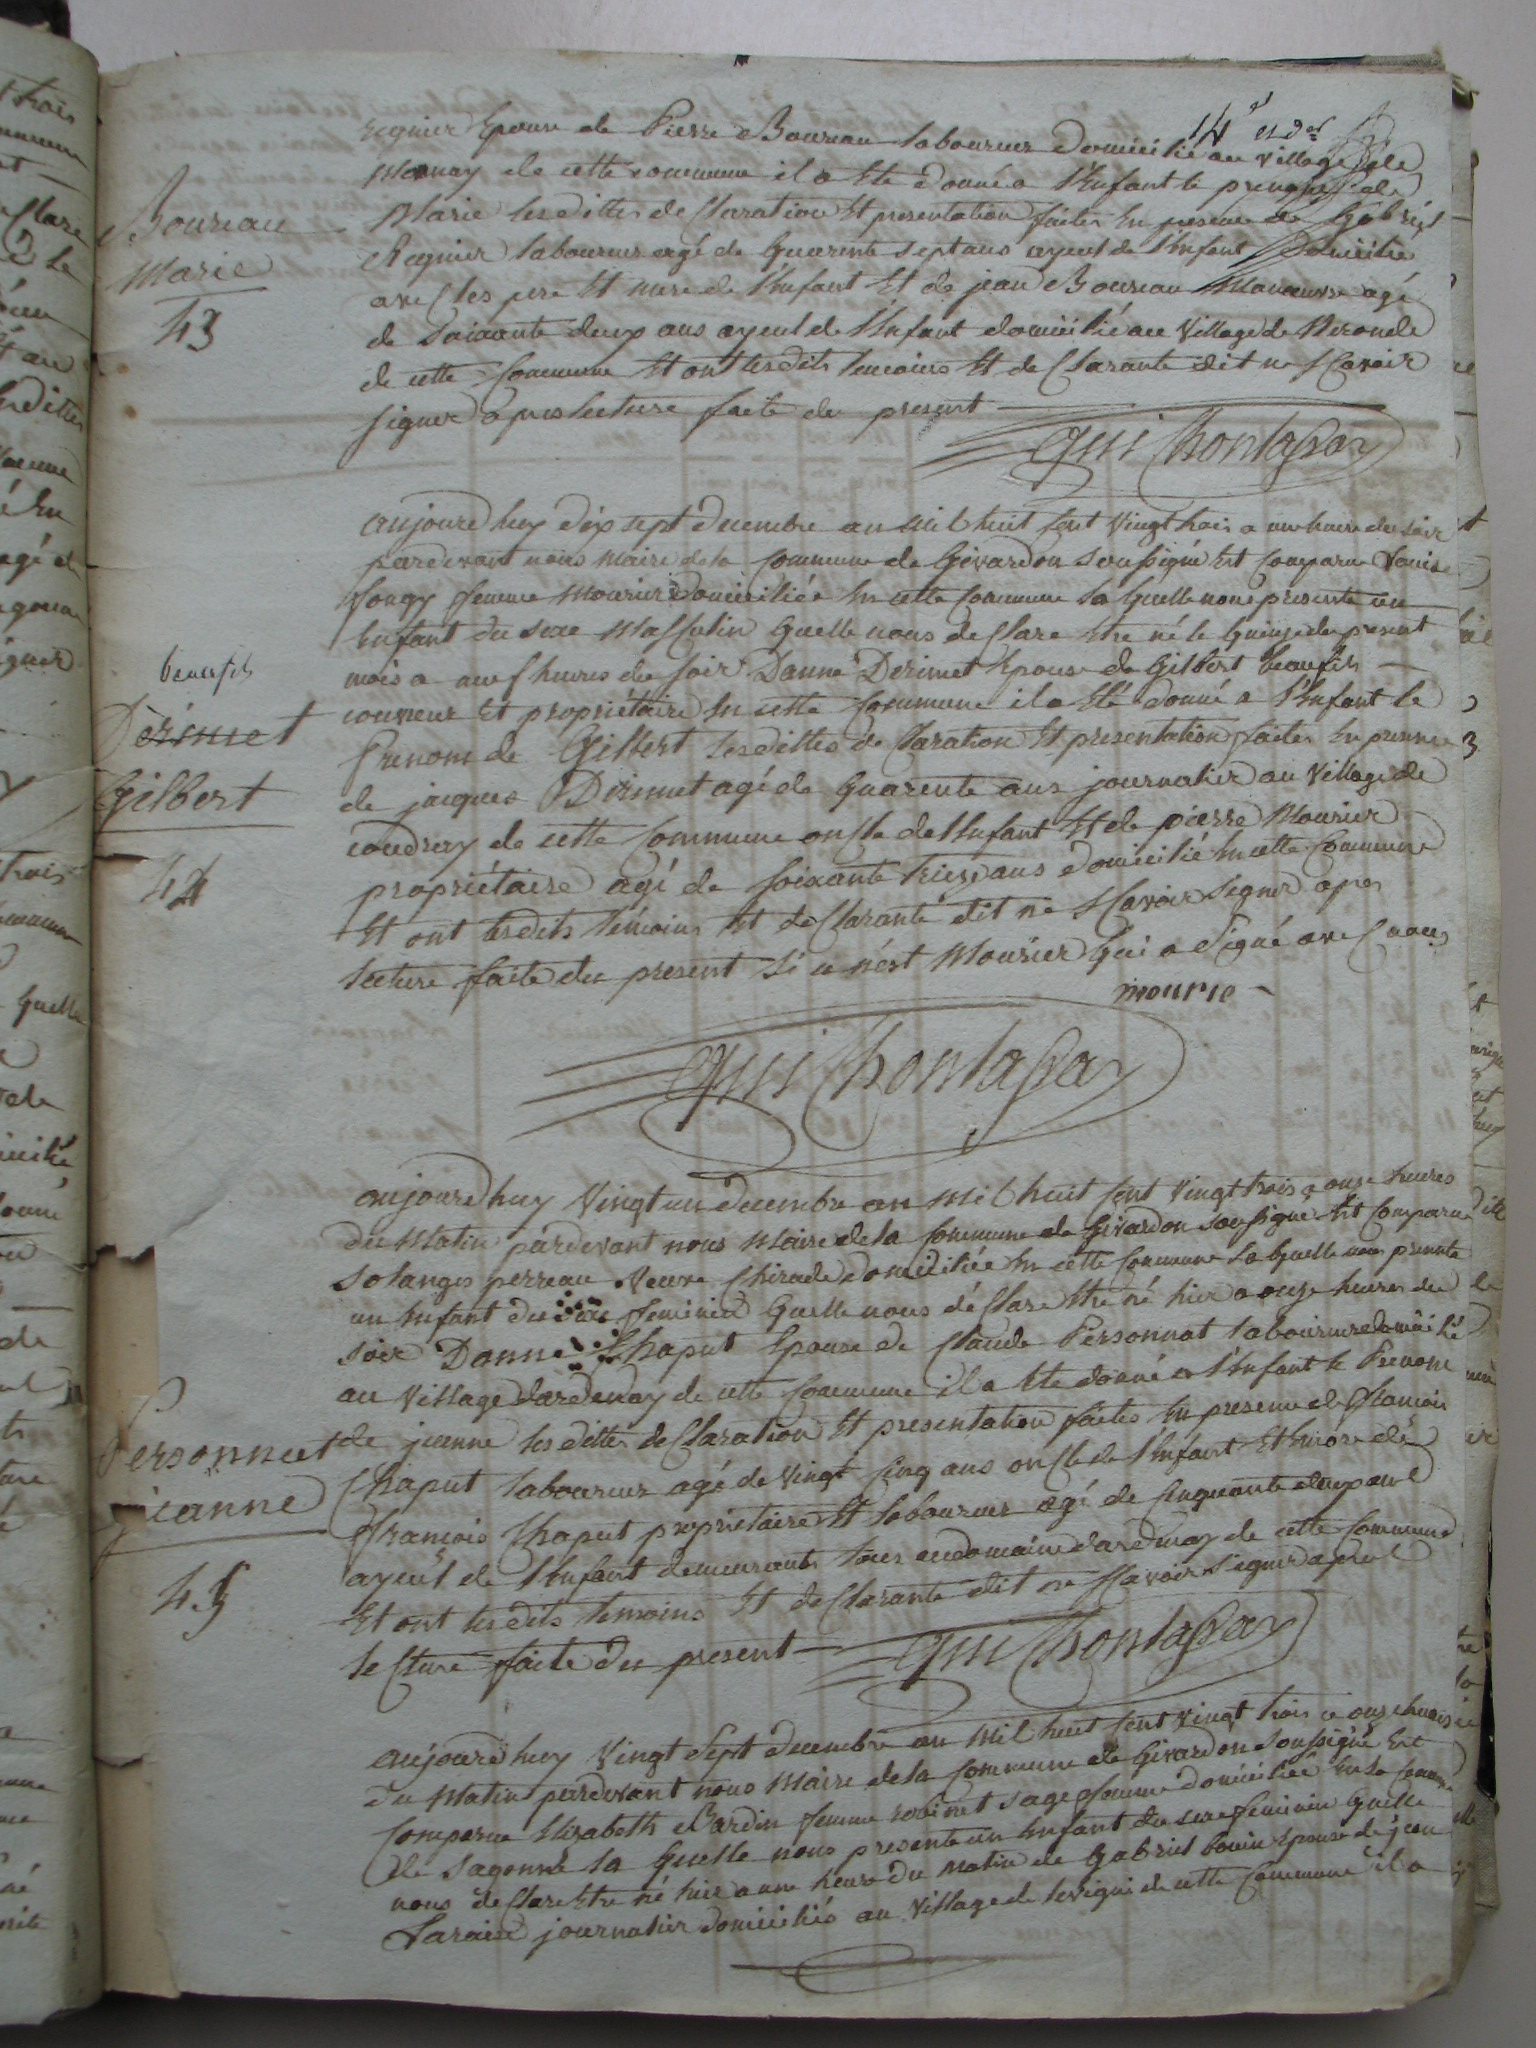 14 et der
regnier Epouse de Pierre Boureau laboureur domicilié au village de
Mornay de cette commune il a Ete donné a l'Enfant le prenom de
Marie lesdittes de Claration Et presentation faites En presence de Gabriel
Regnier laboureur agé de quarente sept ans ayeul de l'Enfant domicilié
avec les pere Et mere de l'Enfant Et de jean Boureau Manœuvre agé
de soixante deux ans ayeul de l'Enfant domicilié au village de Neronde
de cette Commune Et ont lesdits temoins Et de Clarante dit ne sCavoir
signer apres lecture faite du present
Boureau
Marie
43
aujourdhuy dix sept decembre an mil huit sent vingt trois a une heure du soir
pardevant nous maire de la Commune de Givardon soussigné Est Comparue
femme Mourier domiciliée En cette Commune la quelle nous presente un
Enfant du sexe masculin quelle nous de Clare Etre né le quinze du present
mois a neuf heures du soir Danne Derimet Epouse de Gilbert beaufils
couvreur Et propriétaire En cette Commune il a Eté donné a l'Enfant le
Prenom de Gilbert lesdittes de Claration Et presentation faites En presence
de jacques Dérimet agé de quarente ans journalier au village de
coudray de cette Commune on Cle de l'Enfant Et de pierre Mourier
propriétaire agé de soixante treize ans domicilié En cette Commune
Et ont lesdits témoins Et de Clarante dit ne sCavoir signer apres
lecture faite du present si ce n'est Mourier qui a signé avec nous
mourie
beaufils
Dérimet
Gilbert
44
aujourdhuy vingt un decembre an mil huit sent vingt trois a onze heures
du Matin pardevant nous Maire de la Commune de Givardon soussigné Est Comparue
solanges perreau veuve Chirade domiciliée En cette Commune la quelle nous presente
un Enfant du sexe feminin quelle nous dé Clare Etre né hier a onze heures du
soir Danne Chaput Epouse de Claude Personnat laboureur domicilié
au village dardenay de cette Commune il a Ete donné a l'Enfant le Prenom
de jeanne lesdittes de Claration Et presentation faites En presence de francois
Chaput laboureur agé de vingt cinq ans on Cle de l'Enfant Et Encore de
francois Chaput propriétaire Et laboureur agé de cinquante deux ans
ayeul de l'Enfant demeurants tous au domaine dardenay de cette Commune
Et ont lesdits temoins Et de Clarante dit ne sCavoir signer apres
leCture faite du present
Personnat
jeanne
45
aujourdhuy vingt sept decembre an mil huit sent vingt trois a onze heures
du Matin pardevant nous Maire de la Commune de Givardon soussigné Est
Comparue Elizabeth Bardin femme robinet sage femme domiciliée En la Commune
de sagonne la quelle nous presente un Enfant du sexe feminin quelle
nous de Clare Etre né hier a une heure du matin de Gabriel bouin Epouse de jean
journalier domiciliés au village de de cette Commune il a